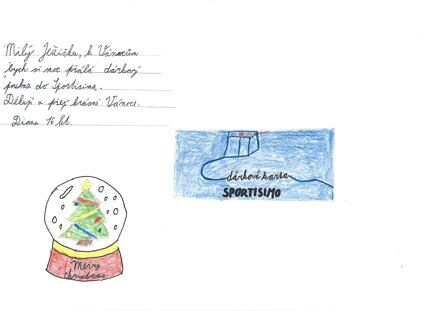 Milý Ježíšku, k Vánocům
bych si moc přála dárkový
poukaz do Sportisima.
Děkuji a přeji krásné Vánoce.
Diana 16 let.
dárková karta
SPORTISIMO
Merry
christmas